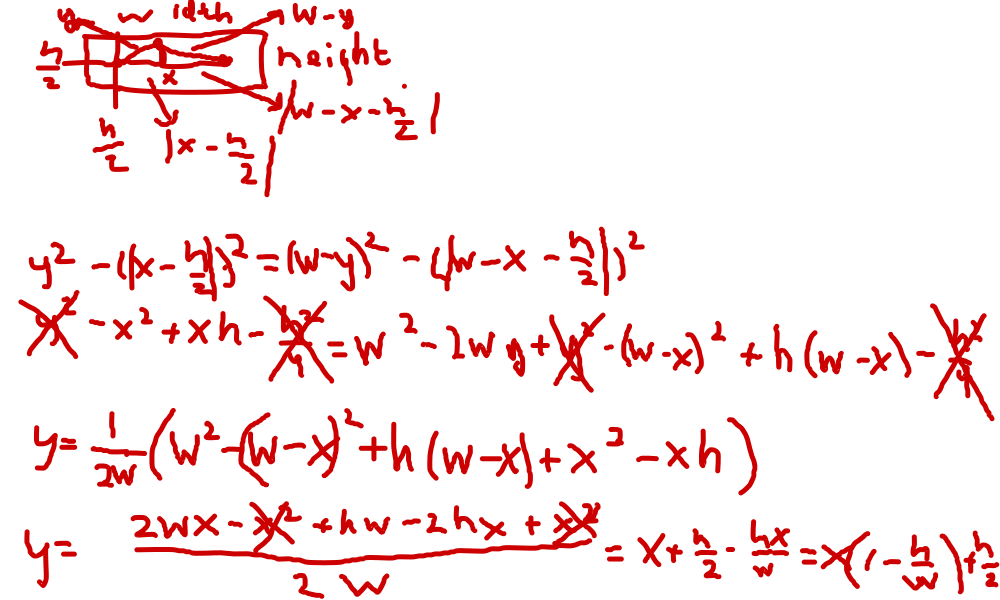 y width w - y
h/2 height
x
|w - x - h/2|
h/2 |x - h/2|
y² - (|x - h/2|)² = (w - y)² - (|w - x - h/2|)²
y² - x² + xh - h²/4 = w² - 2wy + y² - (w - x)² + h(w - x) - h²/4
y = 1/2w (w² - (w - x)² + h(w - x) + x² - xh)
y = (2wx - x² + hw - 2hx + x²)/2w = x + h/2 - hx/w = x(1 - h/w) + h/2